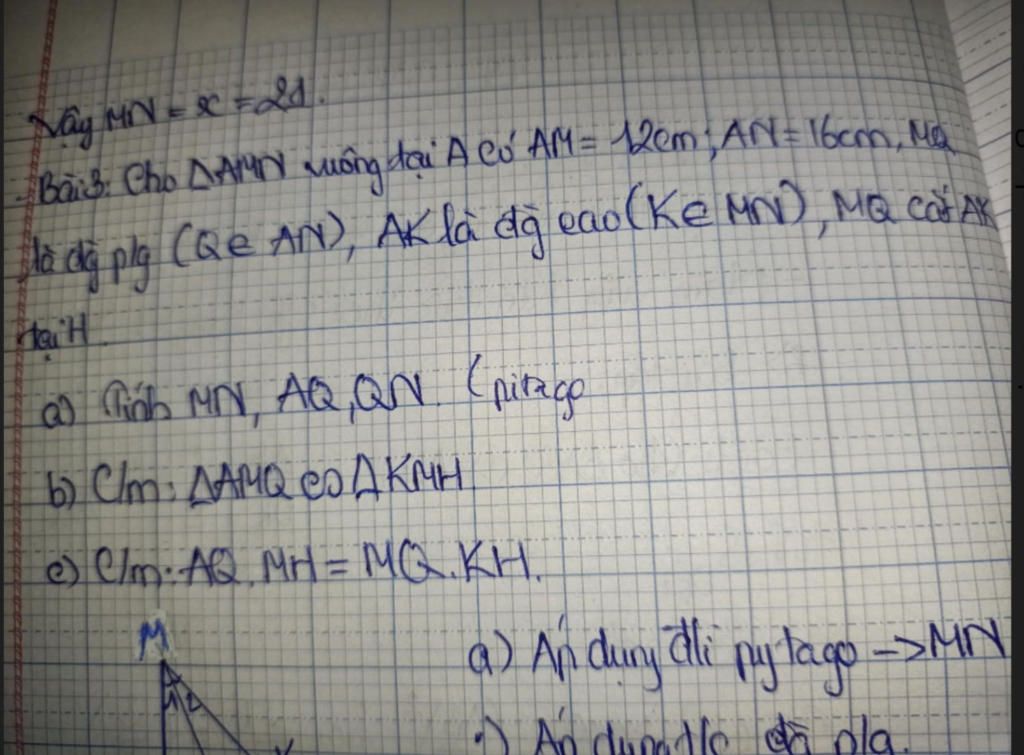 Vậy MN = x = 21.
Bài 3: Cho ΔAMN vuông tại A có AM = 12cm; AN = 16cm, MQ
là đg plg (Q ∈ AN), AK là đg cao (K ∈ MN), MQ cắt AK
tại H.
a) Tính MN, AQ, QN. (pitago
b) C/m: ΔAMQ ∽ ΔKMH
c) C/m: AQ.MH = MQ.KH.
M
a) Áp dụng đlí pytago -> MN
Áp dụng t/c đg plg